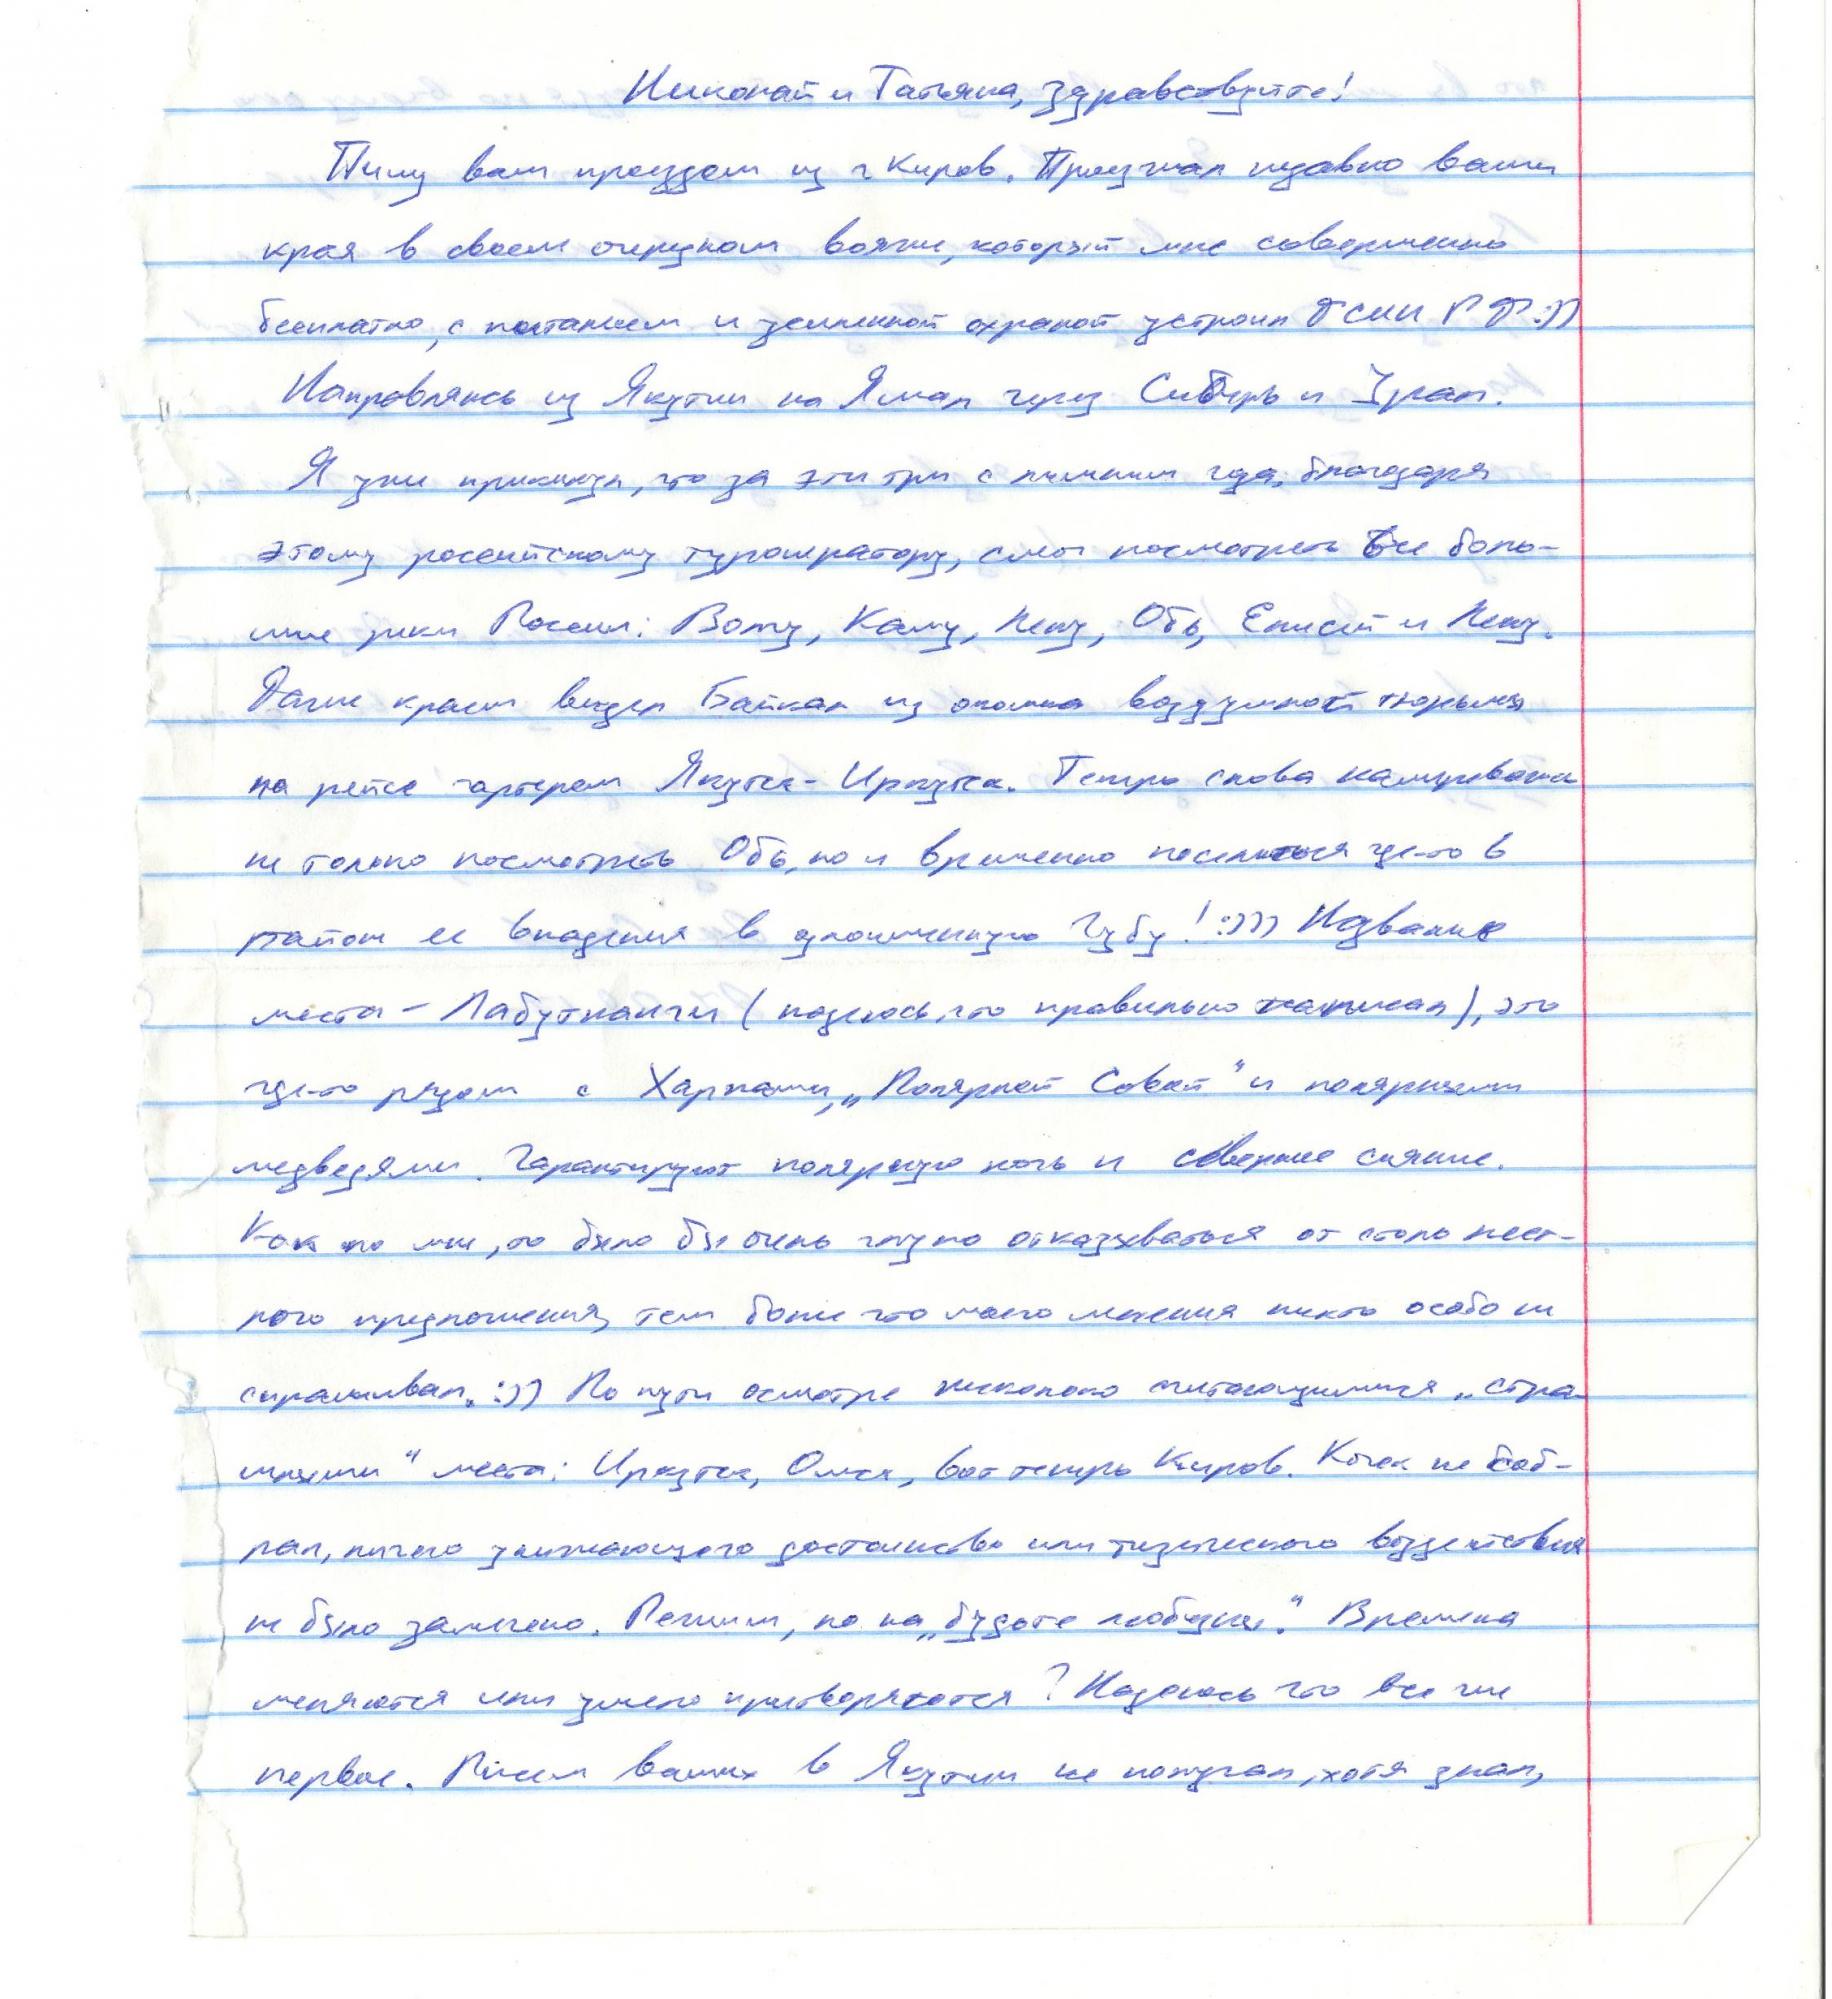 Николай и Татьяна, здравствуйте!
Пишу вам проездом из г Киров. Проезжал недавно ваши
края в своем очередном вояже, который мне совершенно
бесплатно, с питанием и усиленной охраной устроил ФСИН РФ:))
Направляясь из Якутии на Ямал через Сибирь и Урал.
Я уже прикинул, что за эти три с лишним года, благодаря
этому российскому туроператору, смог посмотреть все боль-
шие реки России: Волгу, Каму, Лену, Обь, Енисей и Лену.
Даже краем видел Байкал из окошка воздушной тюрьмы
на рейсе чартером Якутск-Иркутск. Теперь снова намереваюсь
не только посмотреть Обь, но и временно поселиться где-то в
районе ее впадения в одноименную Губу! :))) Название
места - Лабутнанги (надеюсь, что правильно написал), это
где-то рядом с Харпами, „Полярной Совой" и полярными
медведями. Гарантируют полярную ночь и северное сияние.
Как по мне, то было бы очень глупо отказываться от столь лест-
ного предложения, тем более что моего мнения никто особо не
спрашивал. :)) По пути осмотре несколько считающимися „стра-
шными" места: Иркутск, Омск, вот теперь Киров. Кичек не соб-
рал, ничего унижающего достоинство или физического воздействия
не было замечено. Режим, но на „будьте любезны". Времена
меняются или умело притворяются? Надеюсь что все же
первое. Писем ваших в Якутии не получал, хотя знал,